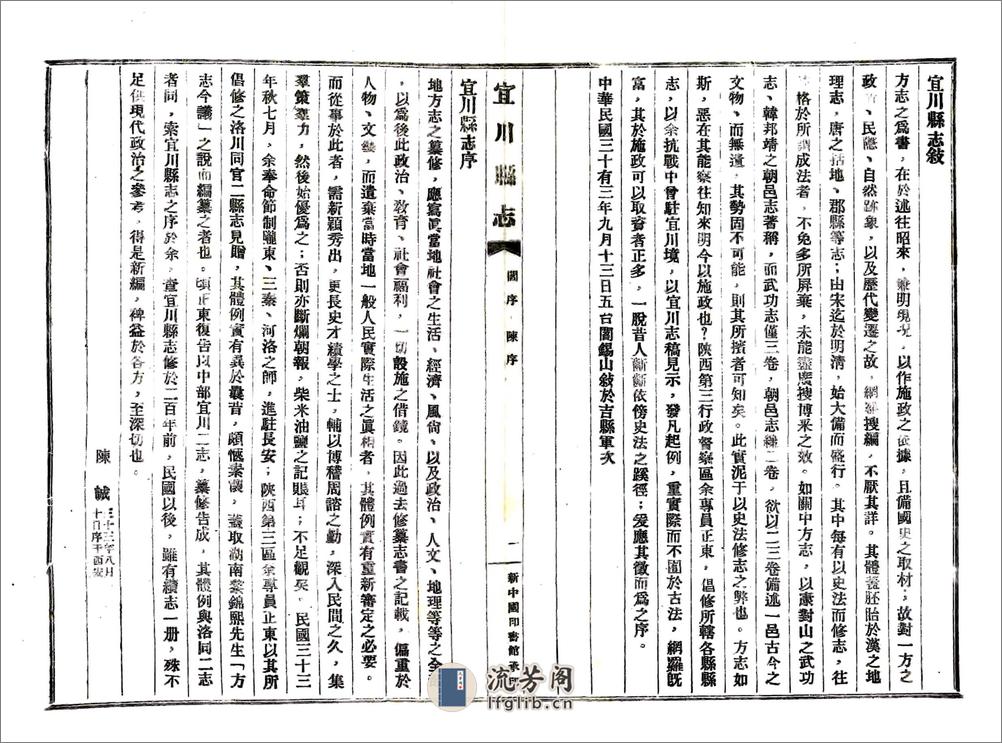 宜川縣志敍
方志之爲書，在於述往昭來，兼明現況，以作施政之依據，且備國史之取材，故對一方之
政、民隱、自然跡象，以及歷代變遷之故，網羅搜編，不厭其詳。其體蓋胚胎於漢之地
理志，唐之括地、郡縣等志；由宋迄於明清，始大備而盛行。其中每有以史法而修志，往
格於所謂成法者，不免多所屏棄，未能盡廣搜博采之效。如關中方志，以康對山之武功
志、韓邦靖之朝邑志著稱，而武功志僅三卷，朝邑志纔二卷，欲以二三卷備述一邑古今之
文物、而無遺，其勢固不可能，則其所擯者可知矣。此實泥于以史法修志之弊也。方志如
斯，惡在其能察往知來明今以施政也？陝西第三行政督察區余專員正東，倡修所轄各縣縣
志，以余抗戰中曾駐宜川境，以宜川志稿見示，發凡起例，重實際而不囿於古法，網羅旣
富，其於施政可以取資者正多，一脫昔人斷斷依傍史法之蹊徑；爰應其徵而爲之序。
中華民國三十有三年九月十三日五台閻錫山敍於吉縣軍次
宜川縣志
閻序 陳序
一
新中國印書館承印
宜川縣志序
地方志之纂修，應寫眞當地社會之生活、經濟、風尙、以及政治、人文、地理等等之全
，以爲後此政治、敎育、社會福利，一切設施之借鏡。因此過去修纂志書之記載，偏重於
人物、文藝，而遺棄當時當地一般人民實際生活之眞相者，其體例實有重新審定之必要。
而從事於此者，需新穎秀出，更長史才績學之士，輔以博稽周諮之勤，深入民間之久，集
羣策羣力，然後始優爲之；否則亦斷爛朝報，柴米油鹽之記賬耳；不足觀矣。民國三十三
年秋七月，余奉命節制隴東、三秦、河洛之師，進駐長安；陝西第三區余專員正東以其所
倡修之洛川同官二縣志見贈，其體例實有異於曩昔，頗愜素懷，蓋取湖南黎錦熙先生「方
志今議」之說而編纂之者也。頃正東復告以中部宜川二志，纂修告成，其體例與洛同二志
者同，索宜川縣志之序於余，查宜川縣志修於二百年前，民國以後，雖有續志一册，殊不
足供現代政治之參考，得是新編，裨益於各方，至深切也。
陳誠 三十三年八月十日序于西安
流芳阁
lfglib.cn